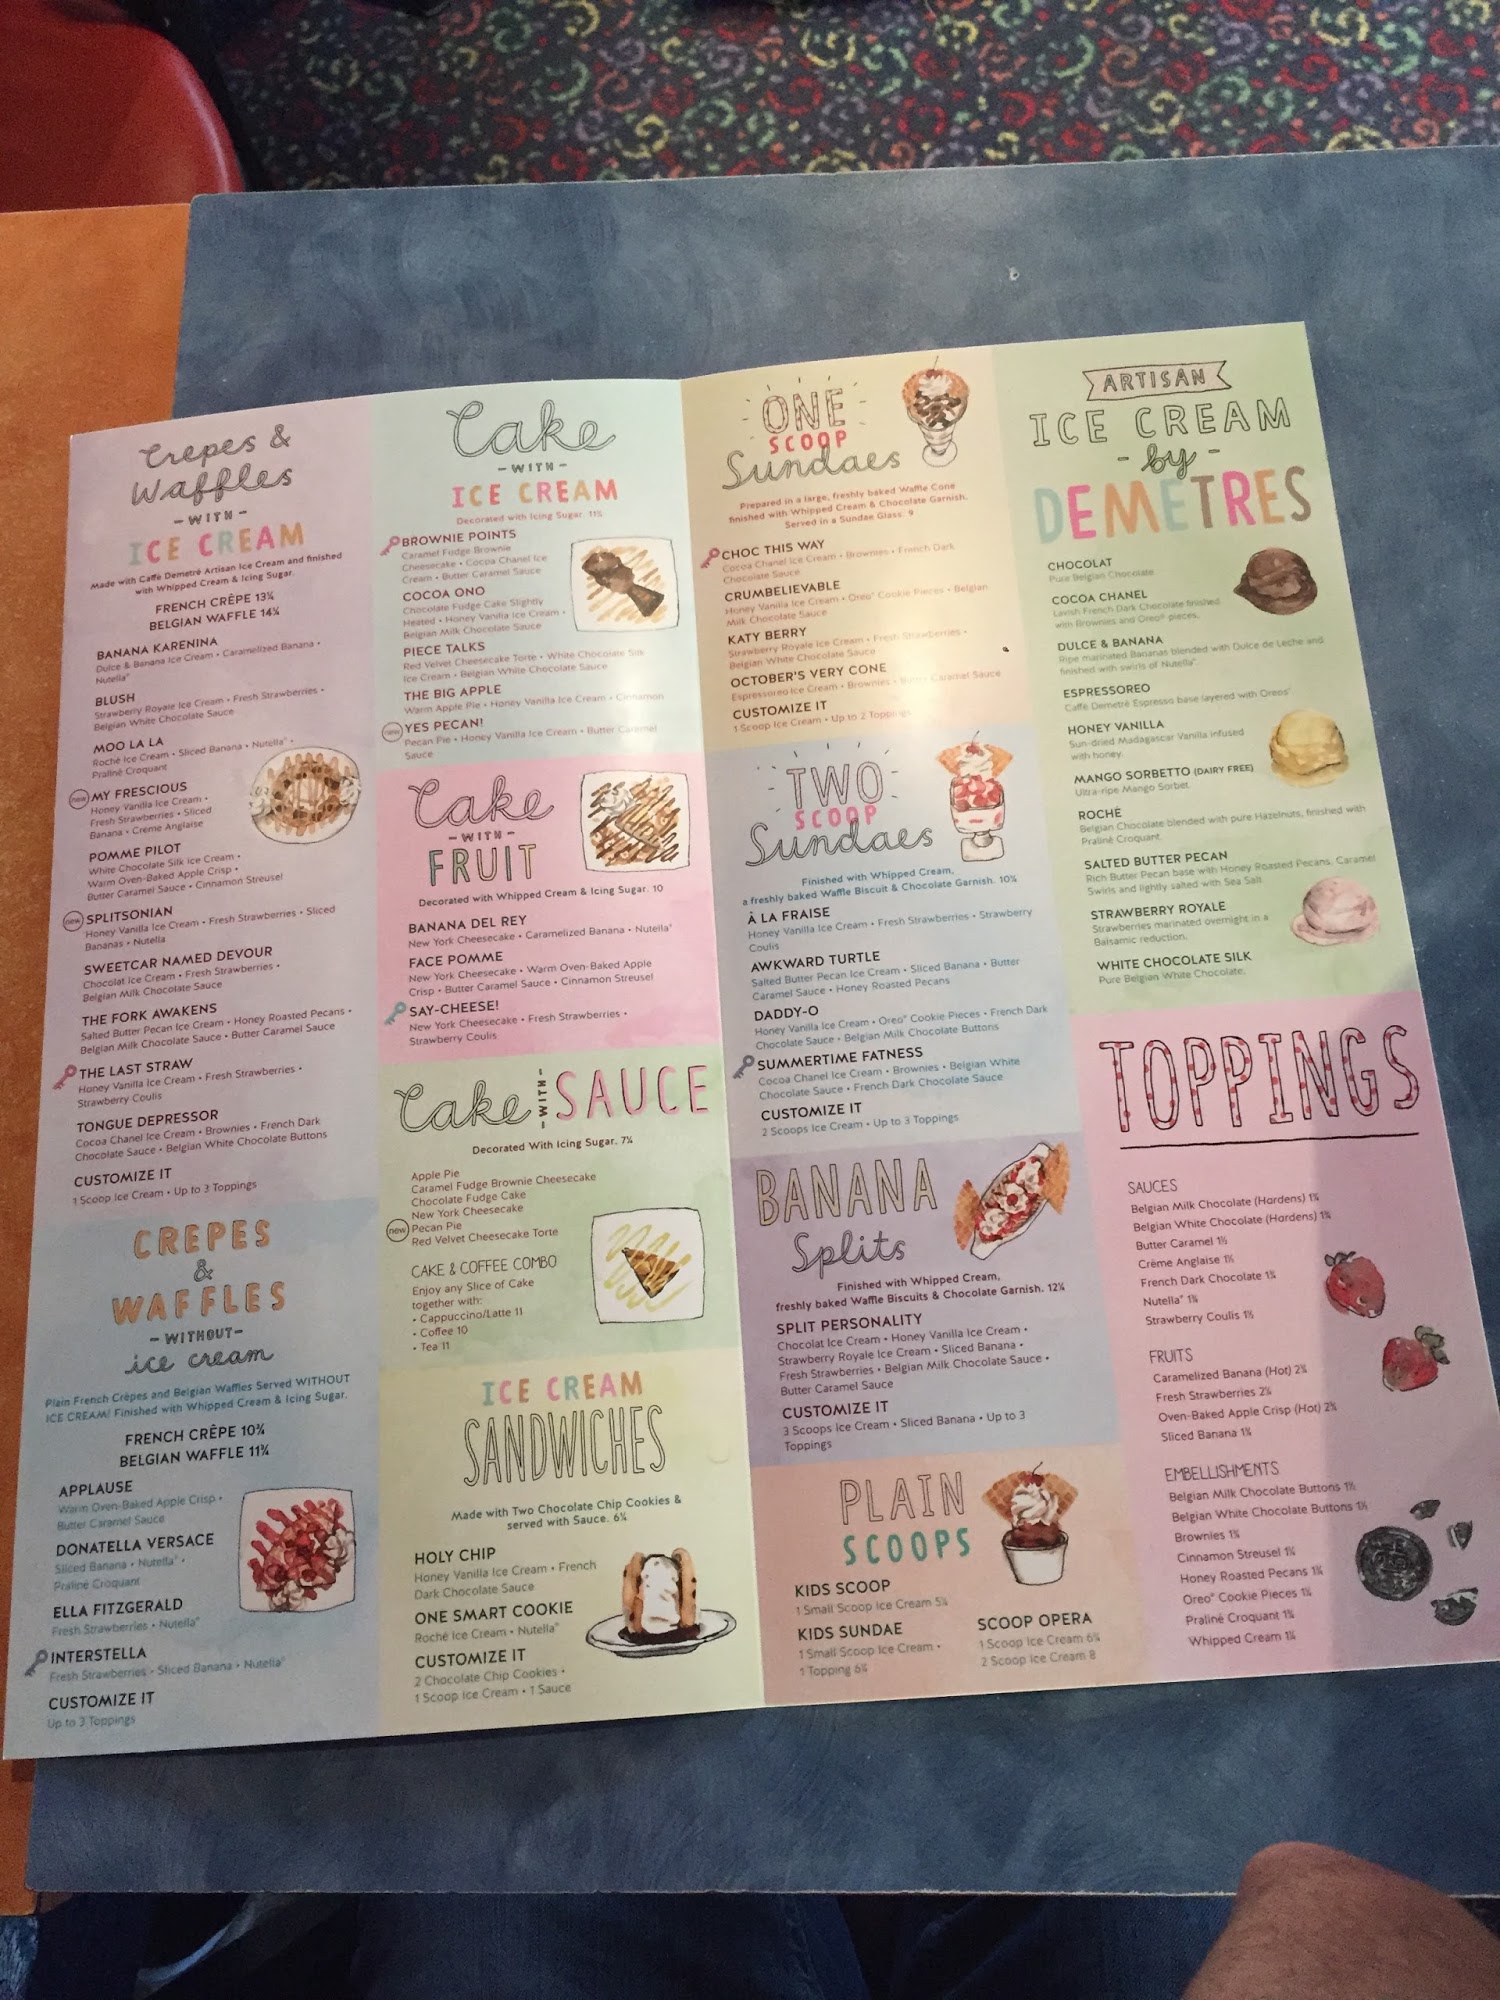 Crepes &
Waffles
- WITH -
ICE CREAM
Made with Caffe Demetre Artisan Ice Cream and finished
with Whipped Cream & Icing Sugar.
FRENCH CRÊPE 13¾
BELGIAN WAFFLE 14¾
BANANA KARENINA
Dulce & Banana Ice Cream • Caramelized Banana •
Nutella®
BLUSH
Strawberry Royale Ice Cream • Fresh Strawberries •
Belgian White Chocolate Sauce
MOO LA LA
Roché Ice Cream • Sliced Banana • Nutella® •
Praliné Croquant
new MY FRESCIOUS
Honey Vanilla Ice Cream •
Fresh Strawberries • Sliced
Banana • Creme Anglaise
POMME PILOT
White Chocolate Silk Ice Cream •
Warm Oven-Baked Apple Crisp •
Butter Caramel Sauce • Cinnamon Streusel
new SPLITSONIAN
Honey Vanilla Ice Cream • Fresh Strawberries • Sliced
Bananas • Nutella
SWEETCAR NAMED DEVOUR
Chocolat Ice Cream • Fresh Strawberries •
Belgian Milk Chocolate Sauce
THE FORK AWAKENS
Salted Butter Pecan Ice Cream • Honey Roasted Pecans •
Belgian Milk Chocolate Sauce • Butter Caramel Sauce
THE LAST STRAW
Honey Vanilla Ice Cream • Fresh Strawberries •
Strawberry Coulis
TONGUE DEPRESSOR
Cocoa Chanel Ice Cream • Brownies • French Dark
Chocolate Sauce • Belgian White Chocolate Buttons
CUSTOMIZE IT
1 Scoop Ice Cream • Up to 3 Toppings
CREPES
&
WAFFLES
- WITHOUT -
ice cream
Plain French Crêpes and Belgian Waffles Served WITHOUT
ICE CREAM! Finished with Whipped Cream & Icing Sugar.
FRENCH CRÊPE 10¾
BELGIAN WAFFLE 11¾
APPLAUSE
Warm Oven-Baked Apple Crisp •
Butter Caramel Sauce
DONATELLA VERSACE
Sliced Banana • Nutella® •
Praliné Croquant
ELLA FITZGERALD
Fresh Strawberries • Nutella®
INTERSTELLA
Fresh Strawberries • Sliced Banana • Nutella®
CUSTOMIZE IT
Up to 3 Toppings
Cake
- WITH -
ICE CREAM
Decorated with Icing Sugar.
BROWNIE POINTS
Caramel Fudge Brownie
Cheesecake • Cocoa Chanel Ice
Cream • Butter Caramel Sauce
COCOA ONO
Chocolate Fudge Cake Slightly
Heated • Honey Vanilla Ice Cream •
Belgian Milk Chocolate Sauce
PIECE TALKS
Red Velvet Cheesecake Torte • White Chocolate Silk
Ice Cream • Belgian White Chocolate Sauce
THE BIG APPLE
Warm Apple Pie • Honey Vanilla Ice Cream • Cinnamon
new YES PECAN!
Pecan Pie • Honey Vanilla Ice Cream • Butter Caramel
Sauce
Cake
- WITH -
FRUIT
Decorated with Whipped Cream & Icing Sugar. 10
BANANA DEL REY
New York Cheesecake • Caramelized Banana • Nutella®
FACE POMME
New York Cheesecake • Warm Oven-Baked Apple
Crisp • Butter Caramel Sauce • Cinnamon Streusel
SAY-CHEESE!
New York Cheesecake • Fresh Strawberries •
Strawberry Coulis
Cake - WITH - SAUCE
Decorated With Icing Sugar. 7¾
Apple Pie
Caramel Fudge Brownie Cheesecake
Chocolate Fudge Cake
New York Cheesecake
new Pecan Pie
Red Velvet Cheesecake Torte
CAKE & COFFEE COMBO
Enjoy any Slice of Cake
together with:
• Cappuccino/Latte 11
• Coffee 10
• Tea 11
ICE CREAM
SANDWICHES
Made with Two Chocolate Chip Cookies &
served with Sauce. 6¾
HOLY CHIP
Honey Vanilla Ice Cream • French
Dark Chocolate Sauce
ONE SMART COOKIE
Roché Ice Cream • Nutella®
CUSTOMIZE IT
2 Chocolate Chip Cookies •
1 Scoop Ice Cream • 1 Sauce
ONE
SCOOP
Sundaes
Prepared in a large, freshly baked Waffle Cone
finished with Whipped Cream & Chocolate Garnish.
Served in a Sundae Glass. 9
CHOC THIS WAY
Cocoa Chanel Ice Cream • Brownies • French Dark
Chocolate Sauce
CRUMBELIEVABLE
Honey Vanilla Ice Cream • Oreo® Cookie Pieces • Belgian
Milk Chocolate Sauce
KATY BERRY
Strawberry Royale Ice Cream • Fresh Strawberries •
Belgian White Chocolate Sauce
OCTOBER'S VERY CONE
Espressoreo Ice Cream • Brownies • Butter Caramel Sauce
CUSTOMIZE IT
1 Scoop Ice Cream • Up to 2 Toppings
TWO
SCOOP
Sundaes
Finished with Whipped Cream,
a freshly baked Waffle Biscuit & Chocolate Garnish. 10¾
À LA FRAISE
Honey Vanilla Ice Cream • Fresh Strawberries • Strawberry
Coulis
AWKWARD TURTLE
Salted Butter Pecan Ice Cream • Sliced Banana • Butter
Caramel Sauce • Honey Roasted Pecans
DADDY-O
Honey Vanilla Ice Cream • Oreo® Cookie Pieces • French Dark
Chocolate Sauce • Belgian Milk Chocolate Buttons
SUMMERTIME FATNESS
Cocoa Chanel Ice Cream • Brownies • Belgian White
Chocolate Sauce • French Dark Chocolate Sauce
CUSTOMIZE IT
2 Scoops Ice Cream • Up to 3 Toppings
BANANA
Splits
Finished with Whipped Cream,
freshly baked Waffle Biscuits & Chocolate Garnish. 12¾
SPLIT PERSONALITY
Chocolat Ice Cream • Honey Vanilla Ice Cream •
Strawberry Royale Ice Cream • Sliced Banana •
Fresh Strawberries • Belgian Milk Chocolate Sauce •
Butter Caramel Sauce
CUSTOMIZE IT
3 Scoops Ice Cream • Sliced Banana • Up to 3
Toppings
PLAIN
SCOOPS
KIDS SCOOP
1 Small Scoop Ice Cream 5¾
KIDS SUNDAE
1 Small Scoop Ice Cream •
1 Topping 6¾
SCOOP OPERA
1 Scoop Ice Cream 6¾
2 Scoop Ice Cream 8
ARTISAN
ICE CREAM
- by -
DEMETRES
CHOCOLAT
Pure Belgian Chocolate.
COCOA CHANEL
Lavish French Dark Chocolate finished
with Brownies and Oreo® pieces.
DULCE & BANANA
Ripe marinated Bananas blended with Dulce de Leche and
finished with swirls of Nutella®.
ESPRESSOREO
Caffe Demetré Espresso base layered with Oreos®
HONEY VANILLA
Sun-dried Madagascar Vanilla infused
with honey.
MANGO SORBETTO (DAIRY FREE)
Ultra-ripe Mango Sorbet.
ROCHÉ
Belgian Chocolate blended with pure Hazelnuts, finished with
Praliné Croquant.
SALTED BUTTER PECAN
Rich Butter Pecan base with Honey Roasted Pecans, Caramel
Swirls and lightly salted with Sea Salt.
STRAWBERRY ROYALE
Strawberries marinated overnight in a
Balsamic reduction.
WHITE CHOCOLATE SILK
Pure Belgian White Chocolate.
TOPPINGS
SAUCES
Belgian Milk Chocolate (Hardens)
Belgian White Chocolate (Hardens)
Butter Caramel
Crème Anglaise
French Dark Chocolate
Nutella®
Strawberry Coulis
FRUITS
Caramelized Banana (Hot)
Fresh Strawberries
Oven-Baked Apple Crisp (Hot)
Sliced Banana
EMBELLISHMENTS
Belgian Milk Chocolate Buttons
Belgian White Chocolate Buttons
Brownies
Cinnamon Streusel
Honey Roasted Pecans
Oreo® Cookie Pieces
Praliné Croquant
Whipped Cream